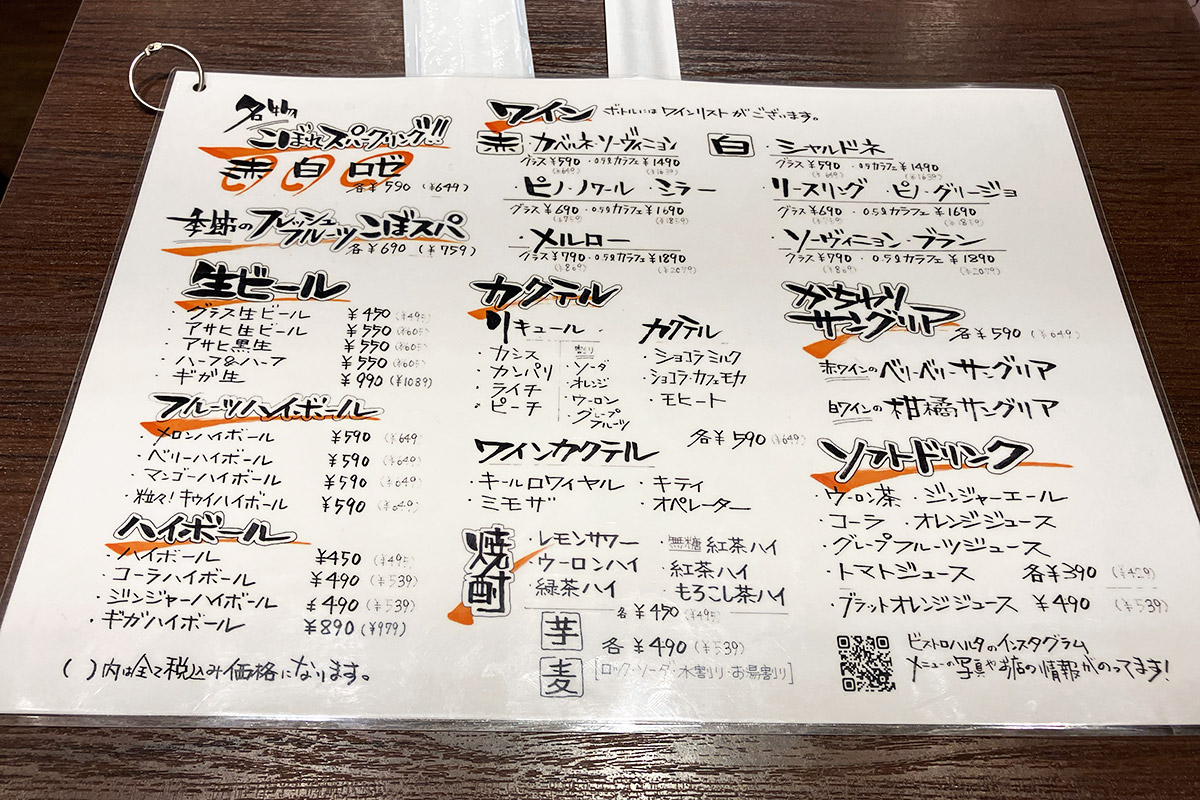 名物
こぼれスパークリング!!
赤 白 ロゼ
各¥590 (¥649)
季節のフレッシュフルーツこぼスパ
各¥690 (¥759)
生ビール
・グラス生ビール ¥450 (¥495)
・アサヒ生ビール ¥550 (¥605)
・アサヒ黒生 ¥550 (¥605)
・ハーフ&ハーフ ¥550 (¥605)
・ギガ生 ¥990 (¥1089)
フルーツハイボール
・メロンハイボール ¥590 (¥649)
・ベリーハイボール ¥590 (¥649)
・マンゴーハイボール ¥590 (¥649)
・粒々!キウイハイボール ¥590 (¥649)
ハイボール
・ハイボール ¥450 (¥495)
・コーラハイボール ¥490 (¥539)
・ジンジャーハイボール ¥490 (¥539)
・ギガハイボール ¥890 (¥979)
( )内は全て税込み価格になります。
ワイン ボトルにはワインリストがございます。
赤 ・カベルネ・ソーヴィニョン
グラス¥590 ・0.5ℓカラフェ¥1490
(¥649) (¥1639)
・ピノ・ノワール ・ミラー
グラス¥690 ・0.5ℓカラフェ¥1690
(¥759) (¥1859)
・メルロー
グラス¥790 ・0.5ℓカラフェ¥1890
(¥869) (¥2079)
白 ・シャルドネ
グラス¥590 ・0.5ℓカラフェ¥1490
(¥649) (¥1639)
・リースリング ・ピノ・グリージョ
グラス¥690 ・0.5ℓカラフェ¥1690
(¥759) (¥1859)
・ソーヴィニョン・ブラン
グラス¥790 ・0.5ℓカラフェ¥1890
(¥869) (¥2079)
カクテル
リキュール
・カシス
・カンパリ
・ライチ
・ピーチ
・ソーダ
・オレンジ
・ウーロン
・グレープフルーツ
カクテル
・ショコラミルク
・ショコラ・カフェモカ
・モヒート
各¥590 (¥649)
ワインカクテル
・キールロワイヤル ・キティ
・ミモザ ・オペレーター
焼酎
・レモンサワー ・無糖紅茶ハイ
・ウーロンハイ ・紅茶ハイ
・緑茶ハイ ・もろこし茶ハイ
各¥450 (¥495)
芋
麦
各¥490 (¥539)
[ロック・ソーダ・水割り・お湯割り]
がちゃりサングリア
各¥590 (¥649)
赤ワインのベリーベリーサングリア
白ワインの柑橘サングリア
ソフトドリンク
・ウーロン茶 ・ジンジャーエール
・コーラ ・オレンジジュース
・グレープフルーツジュース
・トマトジュース 各¥390 (¥429)
・ブラッドオレンジジュース ¥490 (¥539)
ビストロハルタのインスタグラム
メニューの写真やお店の情報がのってます!